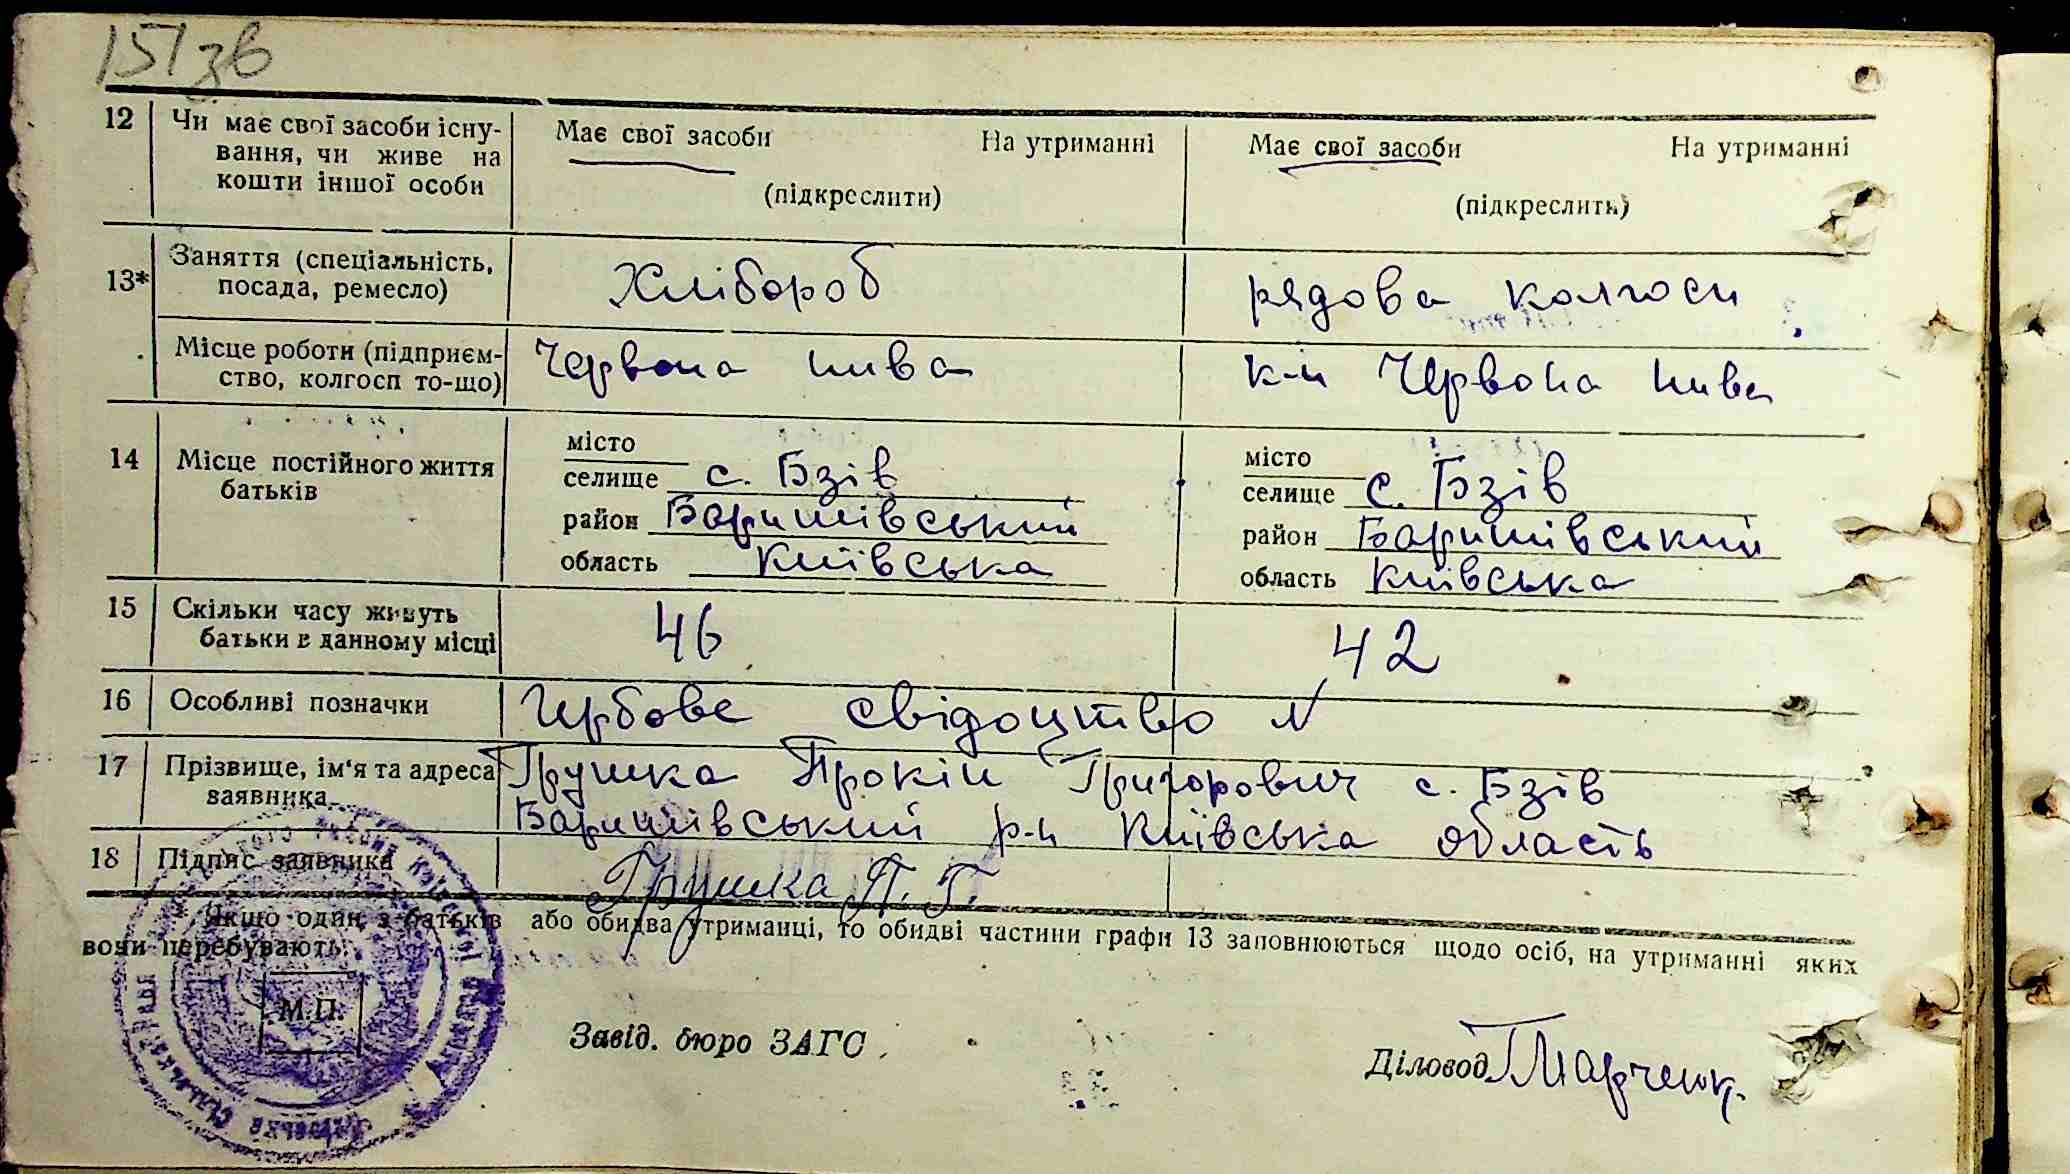 151 зв
12 Чи має свої засоби існу- Має свої засоби На утриманні Має свої засоби На утриманні
вання, чи живе на
кошти іншої особи (підкреслити) (підкреслить)
13* Заняття (спеціальність, Хлібороб рядова колгосп
посада, ремесло)
Місце роботи (підприєм- Червона нива к-п Червона нива
ство, колгосп то-що)
14 Місце постійного життя місто місто
батьків селище с. Бзів селище с. Бзів
район Баришівський район Баришівський
область Київська область Київська
15 Скільки часу живуть 46 42
батьки в данному місці
16 Особливі позначки Гербове свідоцтво N
17 Прізвище, ім'я та адреса Грушка Прокіп Григорович с. Бзів
заявника Баришівський р-н Київська область
18 Підпис заявника Грушка П. Г.
Якщо один з батьків або обидва утриманці, то обидві частини графи 13 заповнюються щодо осіб, на утриманні яких
вони перебувають.
М.П.
Завід. бюро ЗАГС
Діловод Марченк.